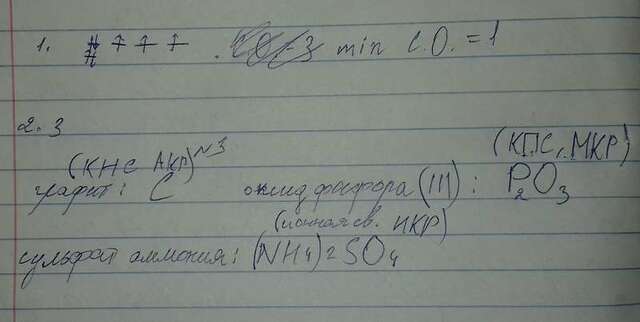 1. # + + + min C.O. = 1
2. 3
(КНС АКР) N3 (КПС, МКР)
графит: C оксид фосфора (III): P2O3
(ионная св. ИКР)
сульфат аммония: (NH4)2SO4